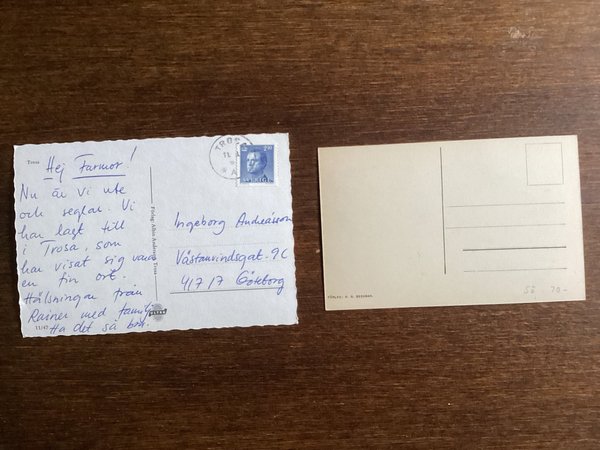 Trosa
Hej Farmor!
Nu är vi ute
och seglar. Vi
har lagt till
i Trosa, som
har visat sig vara
en fin ort.
Hälsningar från
Rainer med familj
Ha det så bra.
11/47
Förlag: Albin Anderson, Trosa
ULTRA
TROSA
Ingeborg Andreásson
Västanvindsgat. 9C
417 17 Göteborg
53 20-